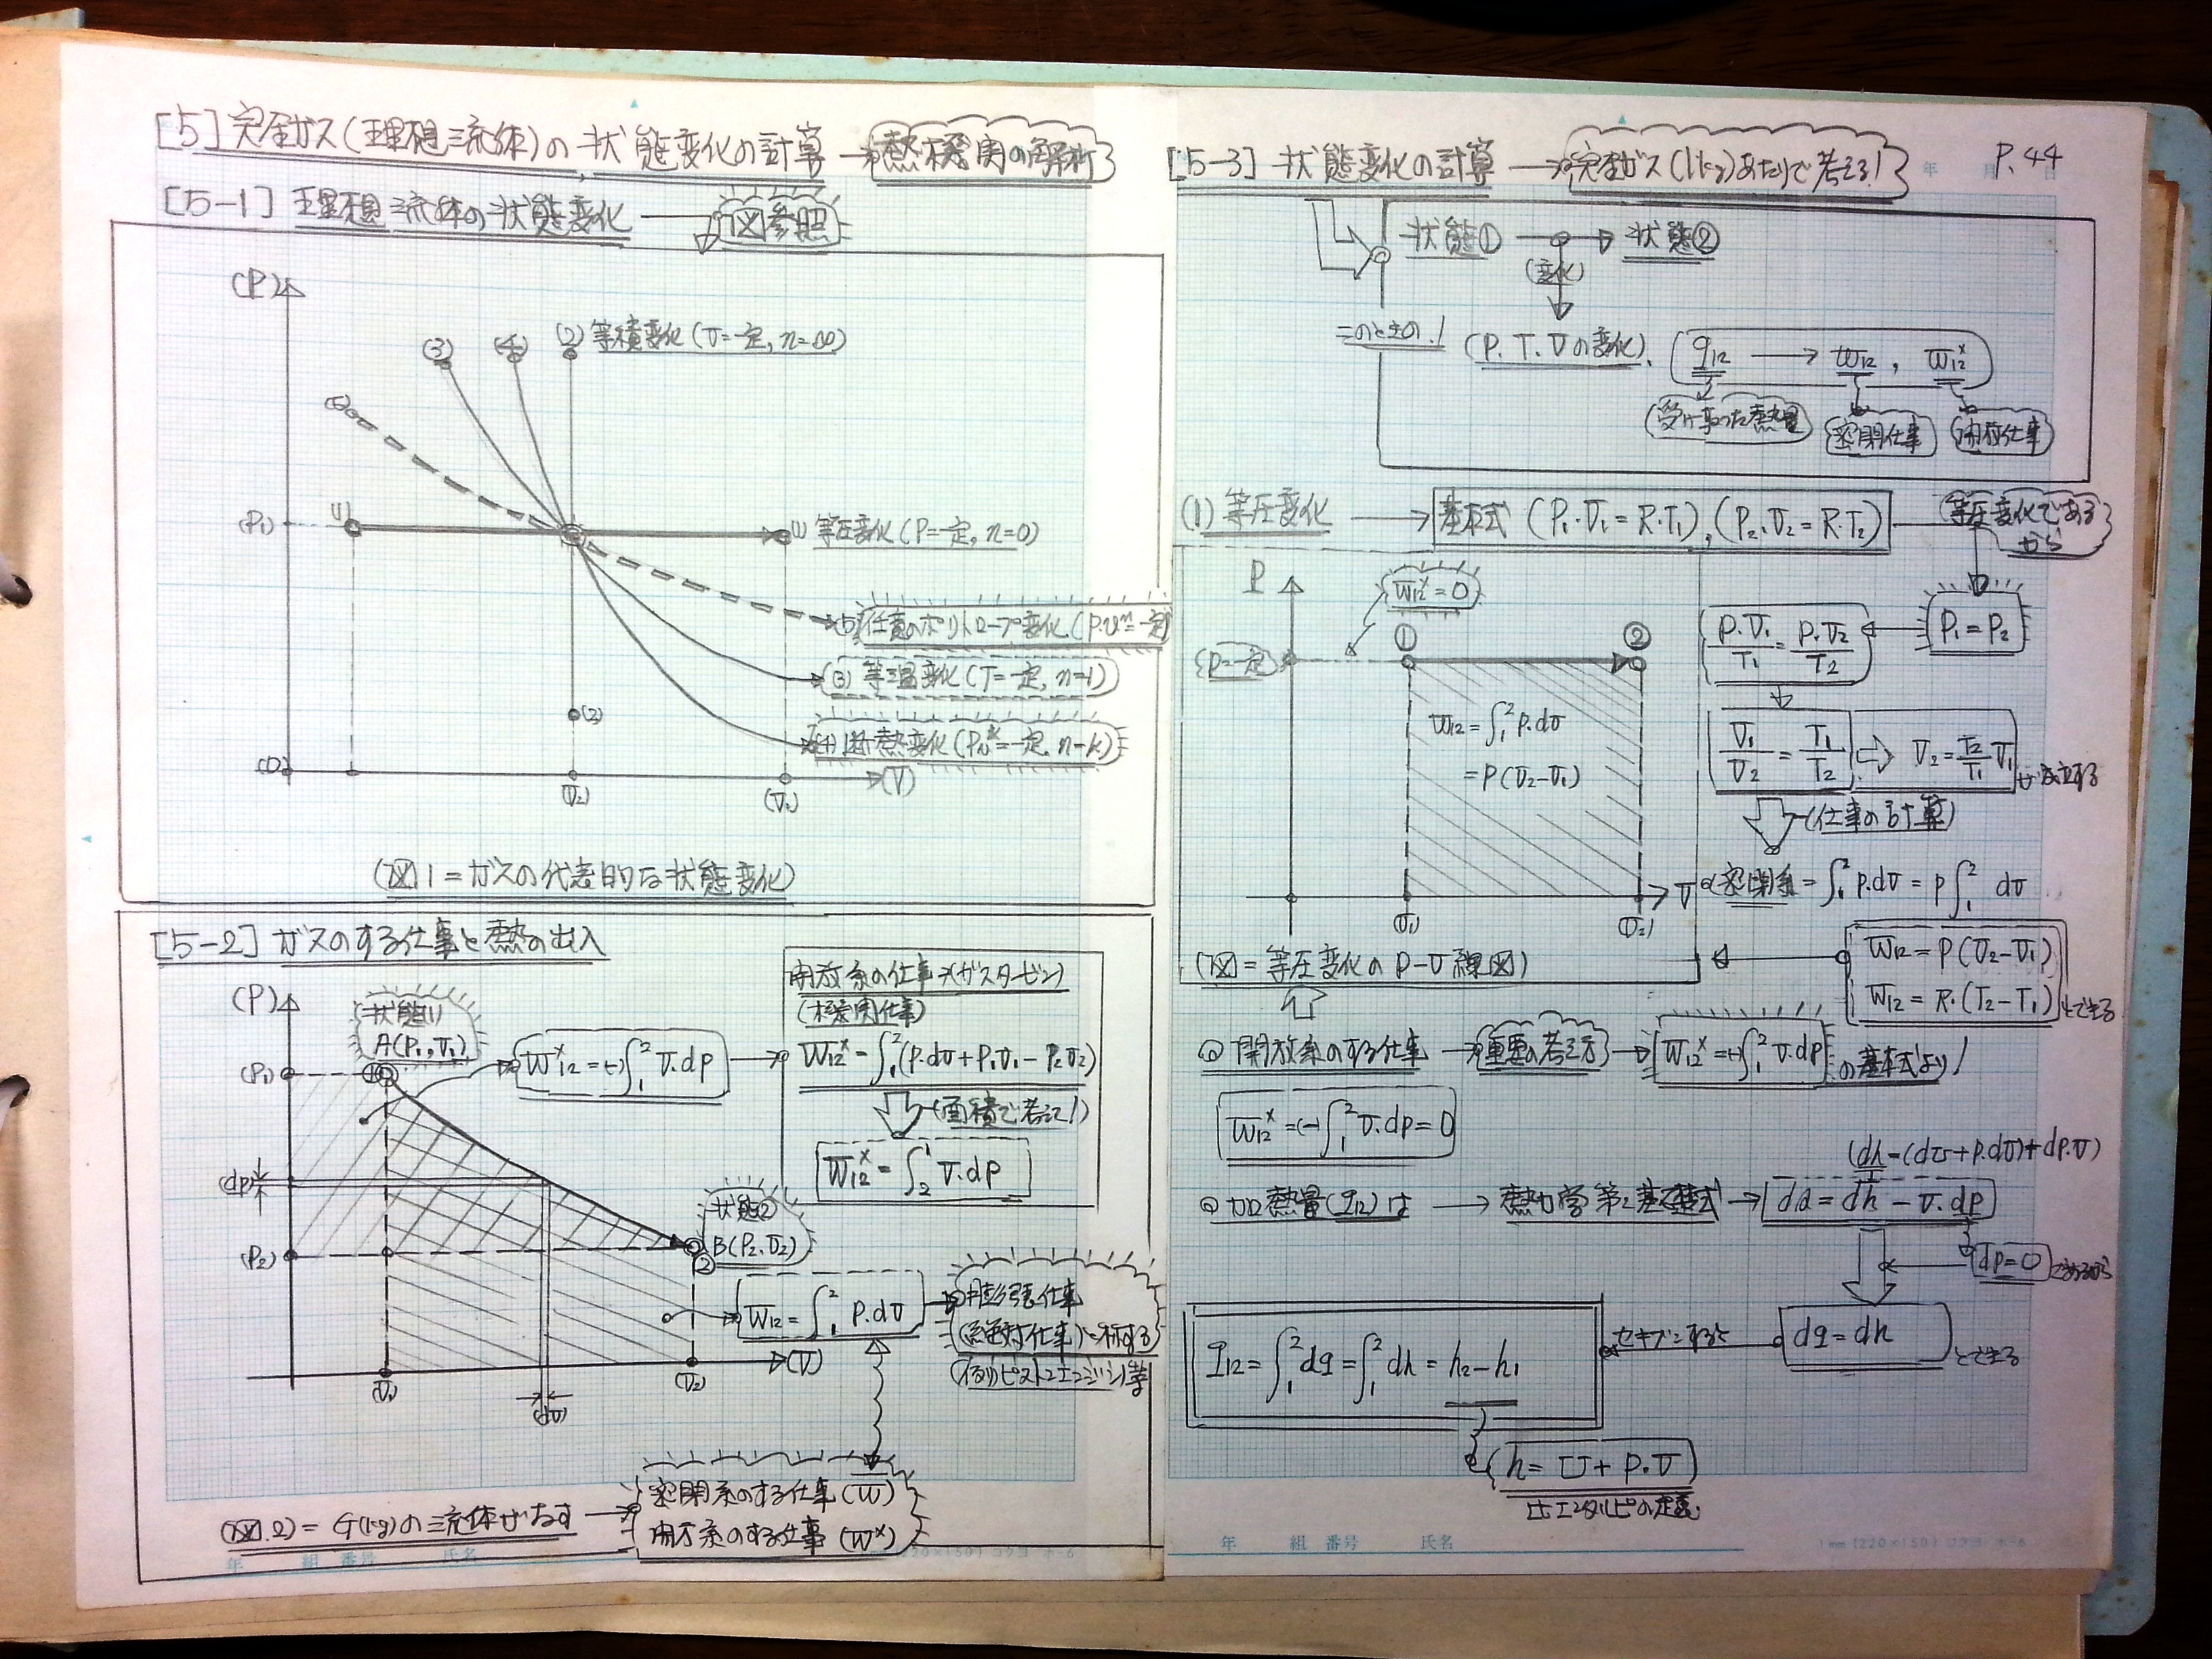 [5] 完全ガス(理想流体)の状態変化の計算 → 熱機関の解析
[5-1] 理想流体の状態変化 → 図参照
(P)
(3) (4) (2) 等積変化 (V=一定, n=∞)
(5)
(P1) (1) (1) 等圧変化 (P=一定, n=0)
(5) 任意のポリトロープ変化 (P.v^n=一定)
(3) 等温変化 (T=一定, n=1)
(2)
(4) 断熱変化 (Pv^k=一定, n=k)
(0) (V2) (V1) (V)
(図1=ガスの代表的な状態変化)
[5-2] ガスのする仕事と熱の出入
(P)
状態(1)
A(P1, V1)
(P1) ①
W12^x=(-)∫1^2 V.dp
開放系の仕事 (ガスタービン)
(機関仕事)
W12^x=∫1^2(P.dv+P1V1-P2V2)
(面積で考えて!)
W12^x=∫2^1 V.dp
(dp)
状態②
B(P2.V2)
(P2) ②
W12=∫1^2 P.dv → 膨張仕事
(絶対仕事)と称する
(例)ピストンエンジン等
(V1) (dv) (V2) (V)
(図.2)=G(kg)の流体がなす →
密閉系のする仕事 (W)
開方系のする仕事 (W^x)
[5-3] 状態変化の計算 → 完全ガス(1kg)あたりで考える!
P.44
状態① → 状態②
(変化)
このときの! (P.T.Vの変化). q12 → W12, W12^x
(受け取った熱量) 密閉仕事 開放仕事
(1) 等圧変化 → 基本式 (P1.V1=R.T1), (P2.V2=R.T2) 等圧変化である
から
P
W12^x=0
P1=P2
P.V1/T1=P.V2/T2
P=一定 ① ②
W12=∫1^2 P.dv
=P(V2-V1)
V1/V2=T1/T2 ⇨ V2=T2/T1 V1 が成立する
(仕事の計算)
(V1) (V2) V
密閉系=∫1^2 P.dv=P∫1^2 dv
W12=P(V2-V1)
W12=R.(T2-T1) とできる
(図=等圧変化のP-V線図)
開放系のする仕事 → 重要な考え方 → W12^x=(-)∫1^2 V.dp の基本式より!
W12^x=(-)∫1^2 V.dp=0
(dh=(du+P.dv)+dp.v)
加熱量(q12)は → 熱力学第2基礎式 → dq=dh-v.dp
dp=0 であるから
dq=dh とできる
セキブンすると
q12=∫1^2 dq=∫1^2 dh=h2-h1
(h=U+P.V)
比エンタルピの定義
年 組 番号 氏名
年 組 番号 氏名
1mm (220×150) コクヨ ホ-6